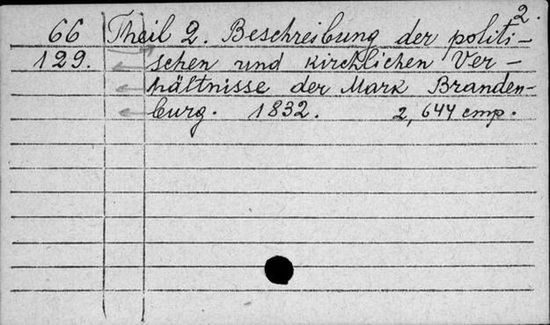 2.
66 Theil 2. Beschreibung der politi-
129. schen und kirchlichen Ver-
hältnisse der Mark Branden-
burg. 1832. 2,644 стр.